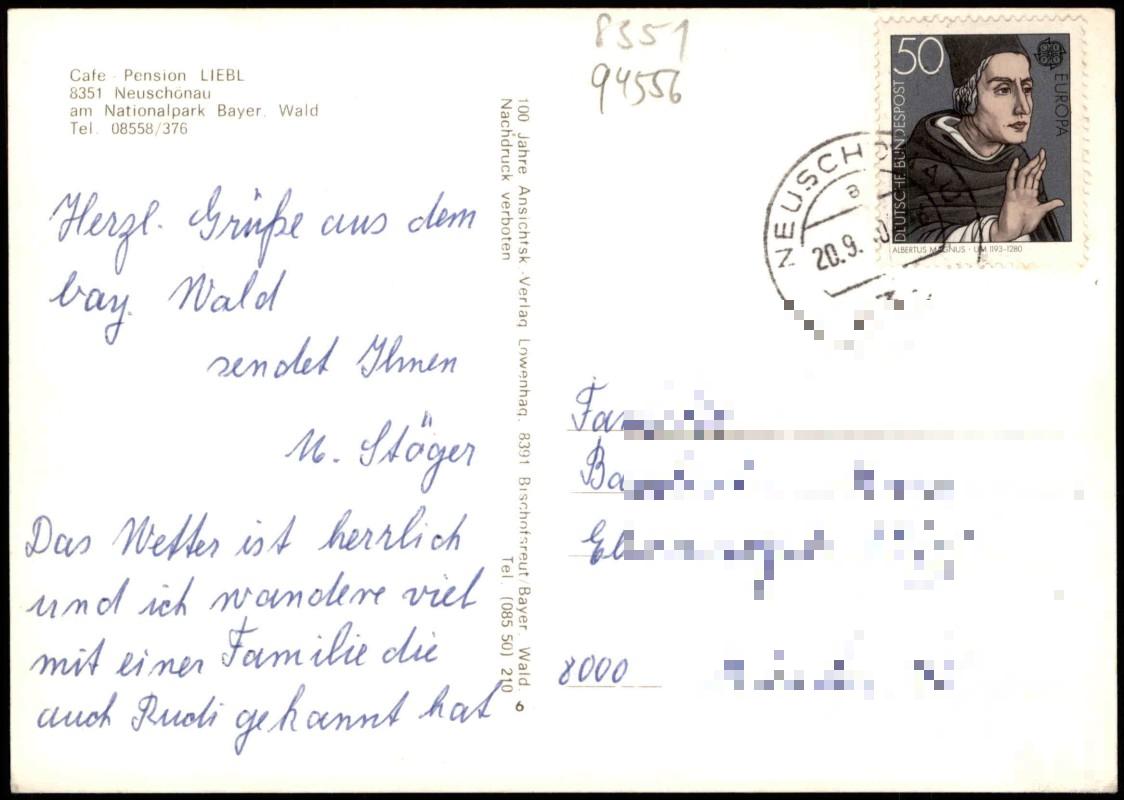 Cafe - Pension LIEBL
8351 Neuschönau
am Nationalpark Bayer. Wald
Tel. 08558/376
Herzl. Grüße aus dem
bay. Wald
sendet Ihnen
M. Stöger
Das Wetter ist herrlich
und ich wandere viel
mit einer Familie die
auch Rudi gekannt hat
100 Jahre Ansichtsk.-Verlag Löwenhag, 8391 Bischofsreut/Bayer. Wald.
Nachdruck verboten
Tel. (085 50) 210
6
8351
94556
50
EUROPA
DEUTSCHE BUNDESPOST
ALBERTUS MAGNUS · UM 1193-1280
NEUSCHÖNAU
a
20.9.
8000